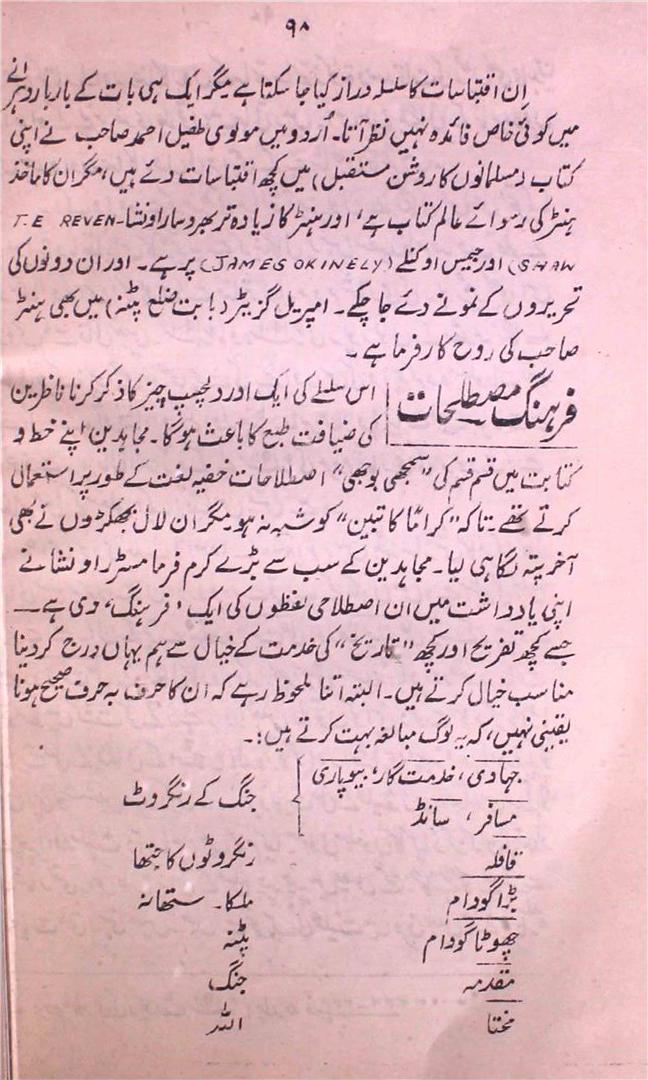 ۹۸
اِن اقتباسات کا سلسلہ دراز کیا جا سکتا ہے مگر ایک ہی بات کے بار بار دہرانے
میں کوئی خاص فائدہ نہیں نظر آتا۔ اُردو میں مولوی طفیل احمد صاحب نے اپنی
کتاب (مسلمانوں کا روشن مستقبل) میں کچھ اقتباسات دئے ہیں، مگر ان کا ماخذ
ہنٹر کی رسوائے عالم کتاب ہے، اور ہنٹر کا زیادہ تر بھروسا راونشا-T.E REVEN
(SHAW اور جیمس اوکنلے (JAMES OKINELY) پر ہے۔ اور ان دونوں کی
تحریروں کے نمونے دئے جا چکے۔ امپریل گزیٹر (بابت ضلع پٹنہ) میں بھی ہنٹر
صاحب کی روح کارفرما ہے۔
فرہنگ مصطلحات
اس سلسلے کی ایک اور دلچسپ چیز کا ذکر کرنا ناظرین
کی ضیافت طبع کا باعث ہوگا۔ مجاہدین اپنے خط و
کتابت میں قسم قسم کی "سمجھی بوجھی" اصطلاحات خفیہ لغت کے طور پر استعمال
کرتے تھے۔ تاکہ "کراماً کاتبین" کو شبہ نہ ہو۔ مگر ان لال بھجکڑوں نے بھی
آخر پتہ لگا ہی لیا۔ مجاہدین کے سب سے بڑے کرم فرما مسٹر راونشا نے
اپنی یادداشت میں ان اصطلاحی لفظوں کی ایک 'فرہنگ' دی ہے—
جسے کچھ تفریح اور کچھ "تاریخ" کی خدمت کے خیال سے ہم یہاں درج کر دینا
مناسب خیال کرتے ہیں۔ البتہ اتنا ملحوظ رہے کہ ان کا حرف بہ حرف صحیح ہونا
یقینی نہیں، کہ یہ لوگ مبالغہ بہت کرتے ہیں:۔
جہادی، خدمت گار، بیوپاری
مسافر، سانڈ
جنگ کے رنگروٹ
قافلہ رنگروٹوں کا جتھا
بڑا گودام ملکا۔ ستھانہ
چھوٹا گودام پٹنہ
مقدمہ جنگ
مختا اللہ